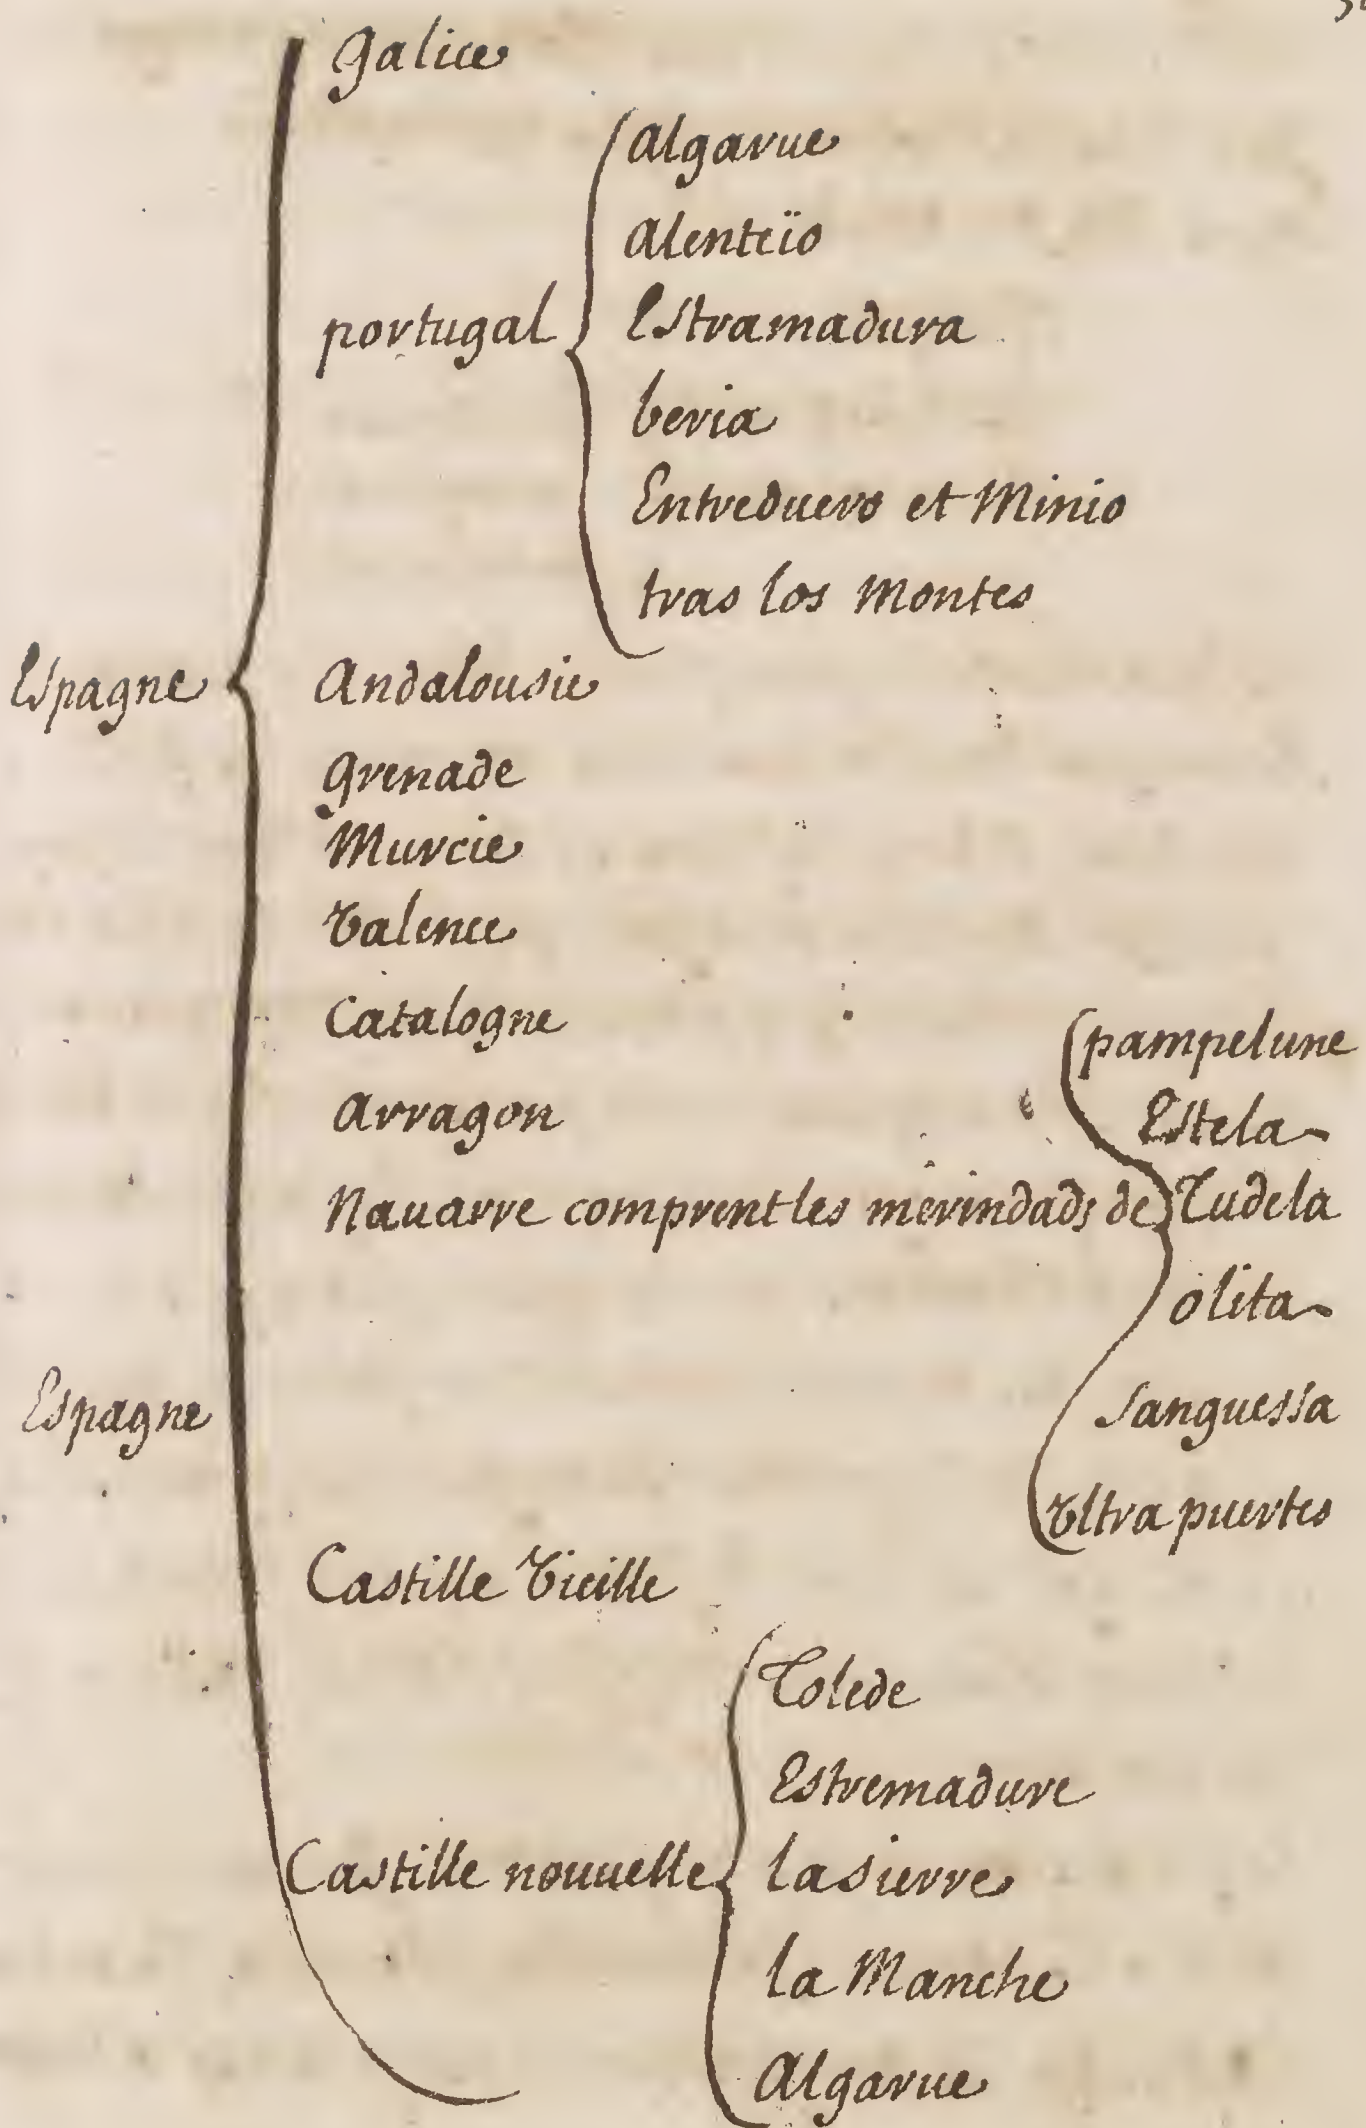 Galice
Algarue
Alenteïo
Estramadura
portugal
beria
Entreduero et Minio
tras los Montes
Espagne
Andalousie
Grenade
Murcie
Valence
Catalogne
Arragon
Nauarre comprent les merindads de
pampelune
Estela
Tudela
olita
Sanguessa
Vltra puertes
Espagne
Castille Vieille
Castille nouuelle
Tolede
Estremadure
la sierre
la Manche
Algarue